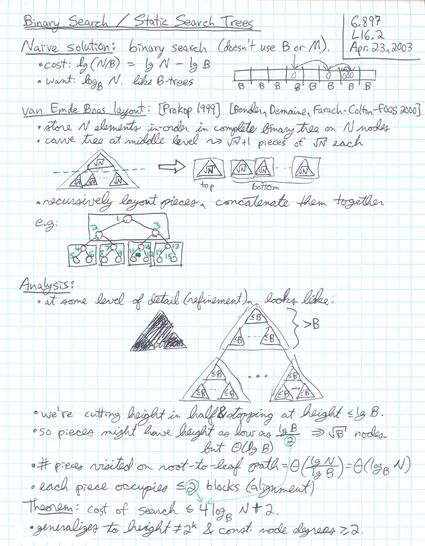 Binary Search / Static Search Trees
6.897
L16.2
Apr. 23, 2003
Naive solution: binary search (doesn't use B or M).
• cost: lg(N/B) = lg N − lg B
• want: log_B N. like B-trees
B B B B B B B B
van Emde Boas layout: [Prokop 1999] [Bender, Demaine, Farach-Colton-FOCS 2000]
• store N elements in-order in complete binary tree on N nodes
• carve tree at middle level ⇝ √N+1 pieces of √N each
√N √N √N √N √N √N
top bottom
• recursively layout pieces, concatenate them together
e.g:
1
2 3
Analysis:
• at some level of detail (refinement), looks like:
≤B ≤B ≤B >B
≤B ≤B ≤B ... ≤B ≤B ≤B
• we're cutting height in half & stopping at height ≤ lg B.
• so pieces might have height as low as lg B / 2 ⇒ √B nodes
but Θ(lg B)
• # pieces visited on root-to-leaf path = Θ(lg N / lg B) = Θ(log_B N)
• each piece occupies ≤ 2 blocks (alignment)
Theorem: cost of search ≤ 4 log_B N + 2.
• generalizes to height ≠ 2^k & const. node degrees ≥ 2.